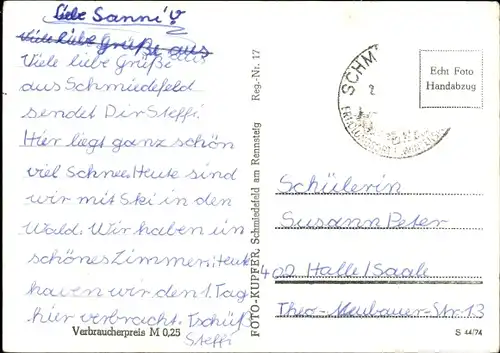 Liebe Sanni!
Viele liebe Grüße aus
Viele liebe Grüße
aus Schmiedefeld
sendet Dir Steffi.
Hier liegt ganz schön
viel Schnee. Heute sind
wir mit Ski in den
Wald. Wir haben ein
schönes Zimmer. Heute
haven wir den 1. Tag
hier verbracht. Tschüß
Steffi
Verbraucherpreis M 0,25
FOTO-KUPFER, Schmiedefeld am Rennsteig Reg.-Nr. 17
SCHM
2
Echt Foto
Handabzug
Schülerin
Susann Peter
402 Halle/Saale
Theo-Neubauer-Str. 13
S 44/74